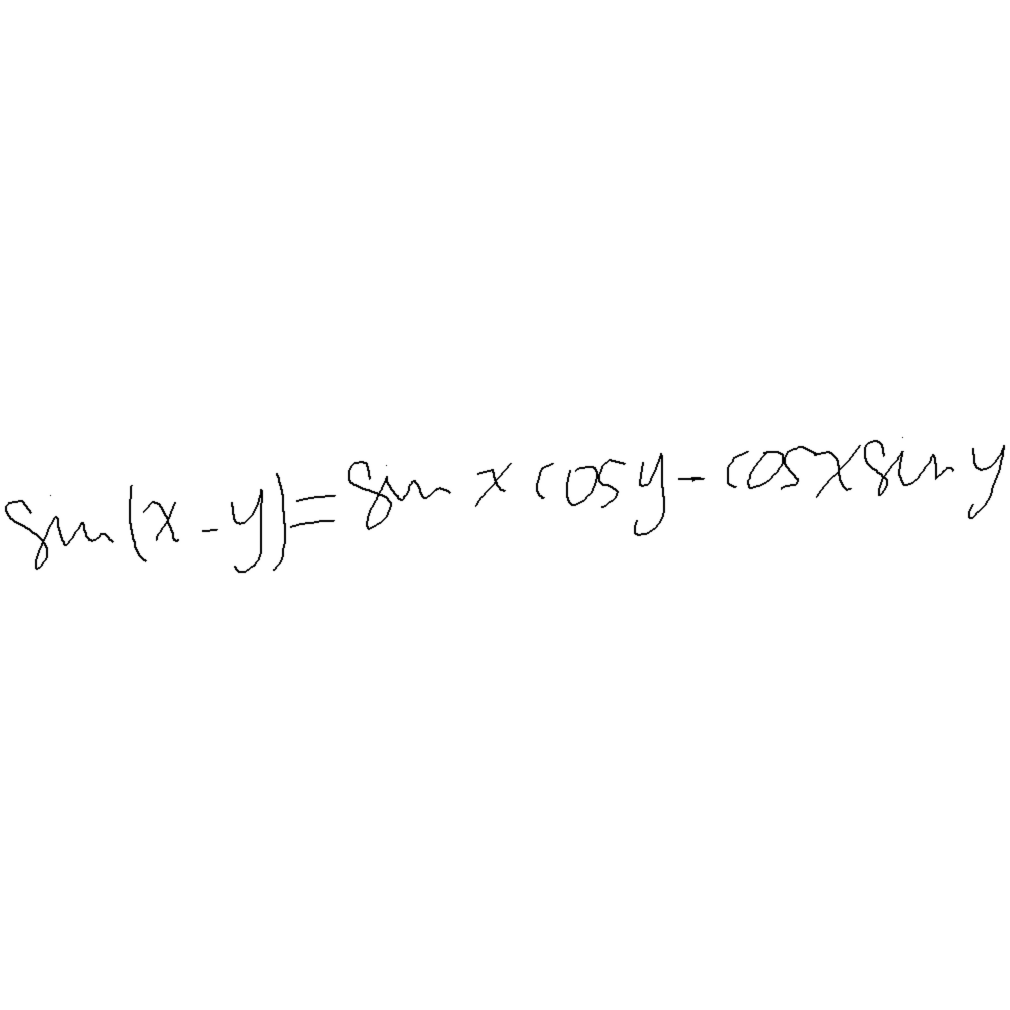 sin(x-y)=sin x cosy-cosxsiny